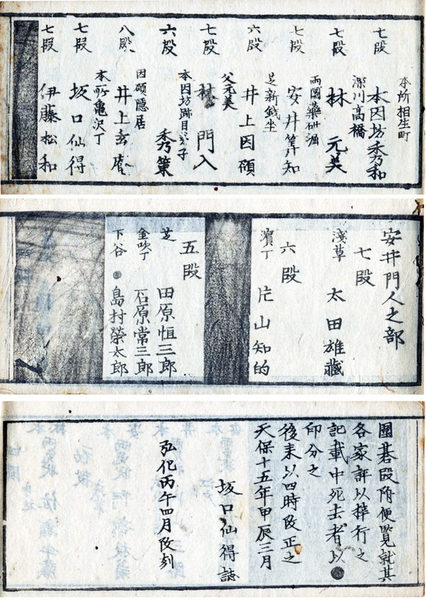 本所相生町
七段 本因坊秀和
深川高橋
七段 林 元美
両國薬研堀
七段 安井算知
芝新銭坐
六段 井上因碩
父元美
七段 林 門入
本因坊跡目秀和子
六段 秀策
因碩隠居
八段 井上玄庵
本所亀沢丁
七段 坂口仙得
七段 伊藤松和
安井門人之部
七段
淺草 太田雄藏
六段
濱丁 片山知的
五段
芝 田原恒三郎
金吹丁 石原常三郎
下谷 島村榮太郎
圍碁段附便覧就其
各家評以梓行之
記載中死去者以●
印分之
後来以四時改正之
天保十五年甲辰三月
坂口仙得誌
弘化丙午四月改刻